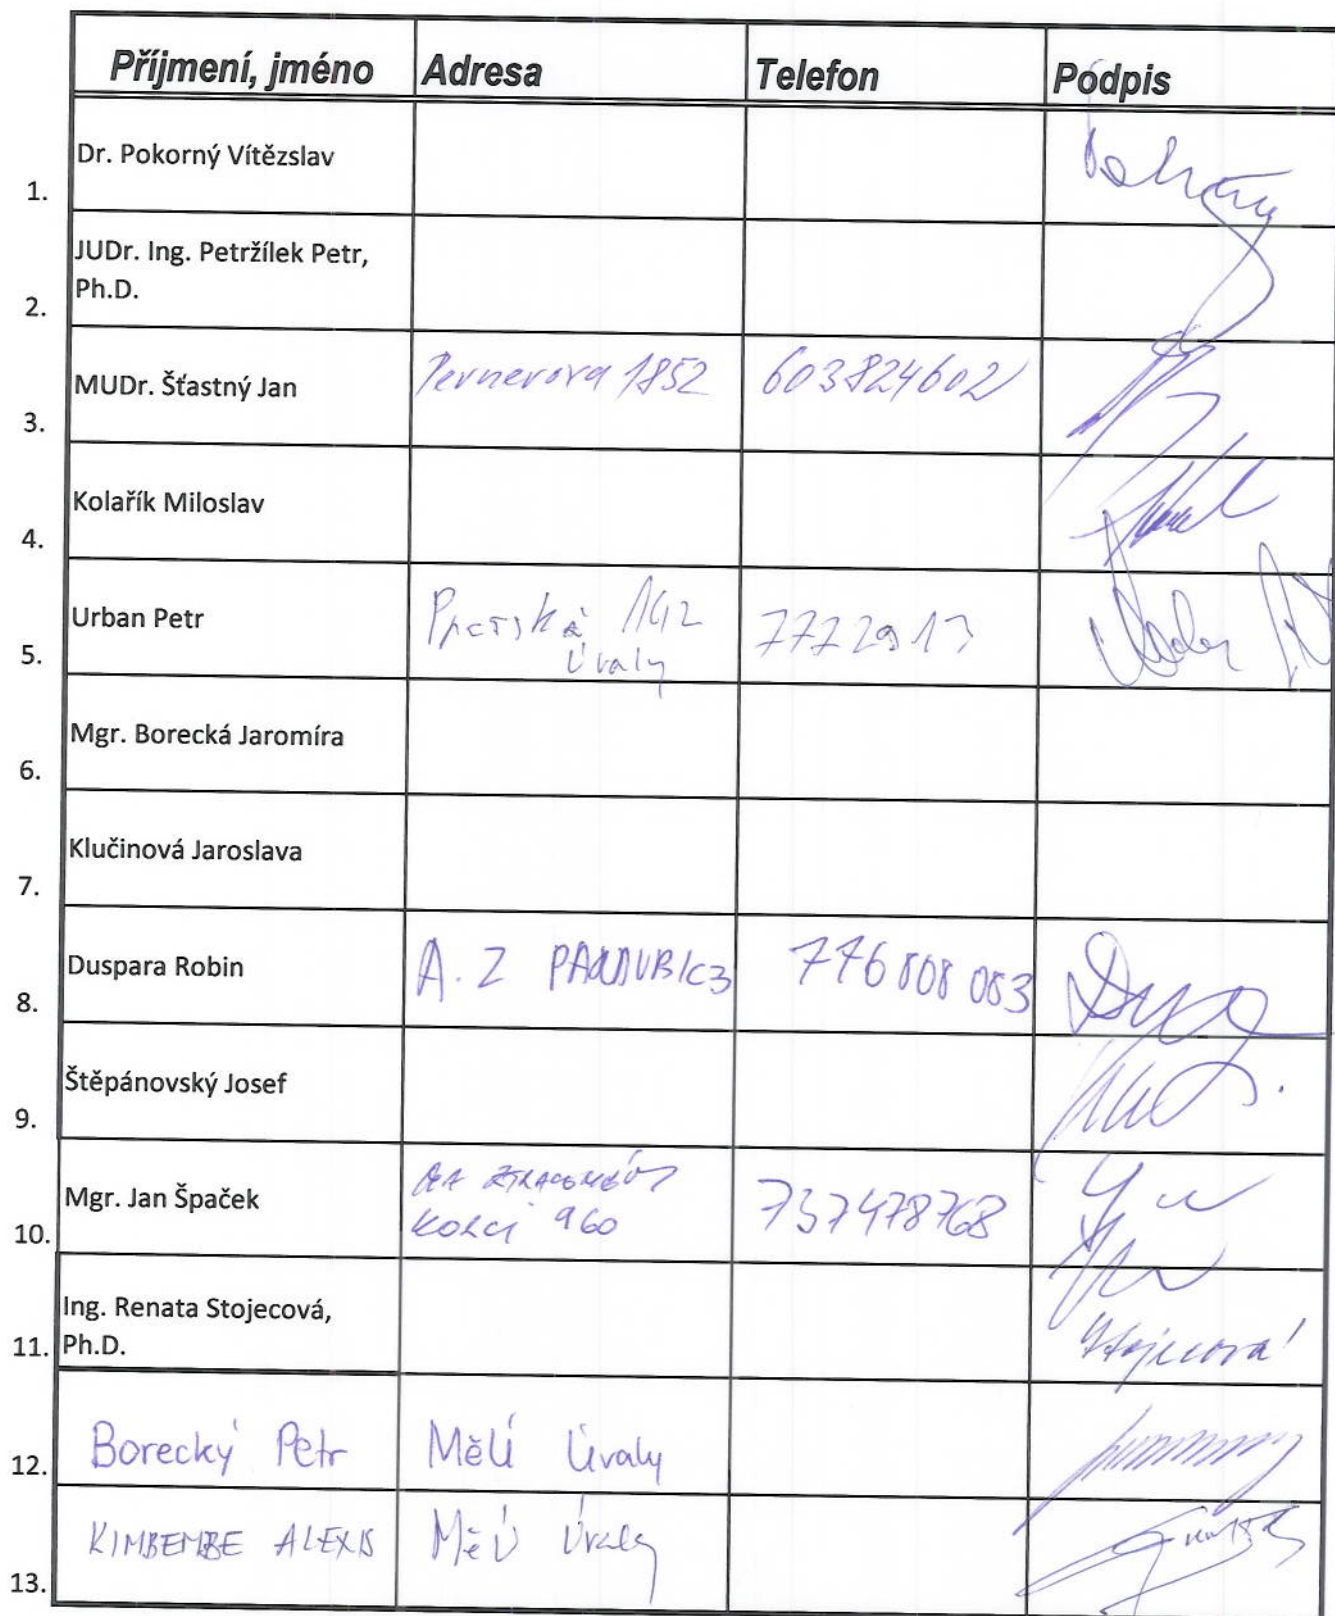 Příjmení, jméno Adresa Telefon Podpis
1. Dr. Pokorný Vítězslav
2. JUDr. Ing. Petržílek Petr,
Ph.D.
3. MUDr. Šťastný Jan Pernerova 1852 603824602
4. Kolařík Miloslav
5. Urban Petr 142
Úvaly
6. Mgr. Borecká Jaromíra
7. Klučinová Jaroslava
8. Duspara Robin A. Z 776 808 083
9. Štěpánovský Josef
10. Mgr. Jan Špaček 737478768
960
11. Ing. Renata Stojecová,
Ph.D. Stojecová
12. Borecký Petr MěÚ Úvaly
13. KIMBEMBE ALEXIS MěÚ Úvaly